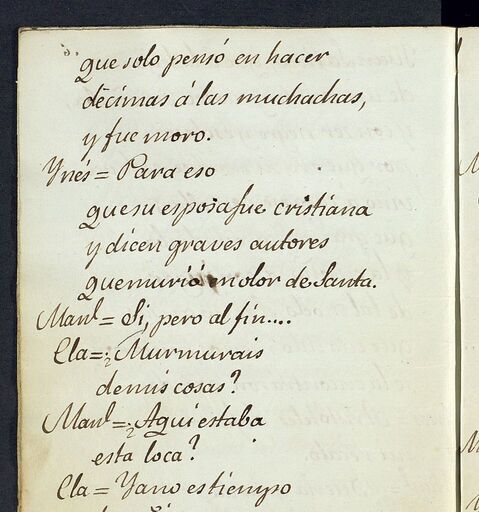 que solo pensó en hacer
décimas á las muchachas,
y fue moro.
Ynés = Para eso
que su esposa fue cristiana
y dicen graves autores
que murió en olor de Santa.
Manl = Si, pero al fin....
Cla = ¿Murmurais
de mis cosas?
Manl = ¿Aqui estaba
esta loca?
Cla = Ya no es tiempo